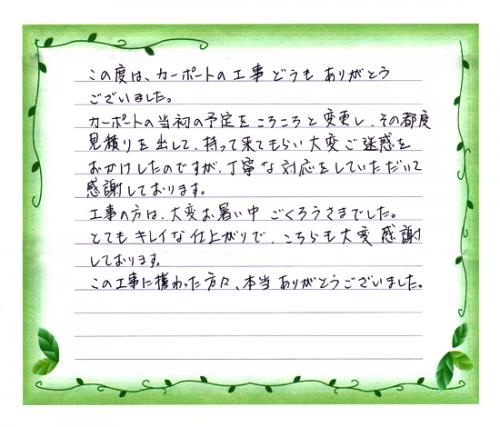 この度は、カーポートの工事どうもありがとう
ございました。
カーポートの当初の予定をころころと変更し、その都度
見積りを出して、持って来てもらい大変ご迷惑を
おかけしたのですが、丁寧な対応をしていただいて
感謝しております。
工事の方は、大変お暑い中ごくろうさまでした。
とてもキレイな仕上がりで、こちらも大変感謝
しております。
この工事に携わった方々、本当ありがとうございました。